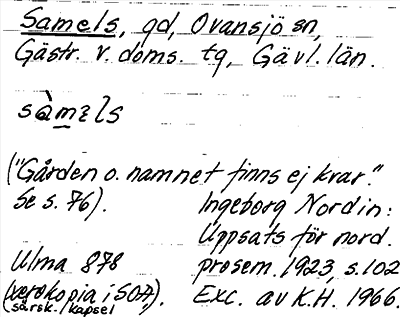 Samels, gd, Ovansjö sn,
Gästr. v. doms. tg, Gävl. län.
sàmɛls
("Gården o. namnet finns ej kvar."
Se s. 76).
Ingeborg Nordin:
Uppsats för nord.
Ulma 878
prosem. 1923, s. 102
(xerokopia i SOA,
särsk. kapsel).
Exc. av K.H. 1966.